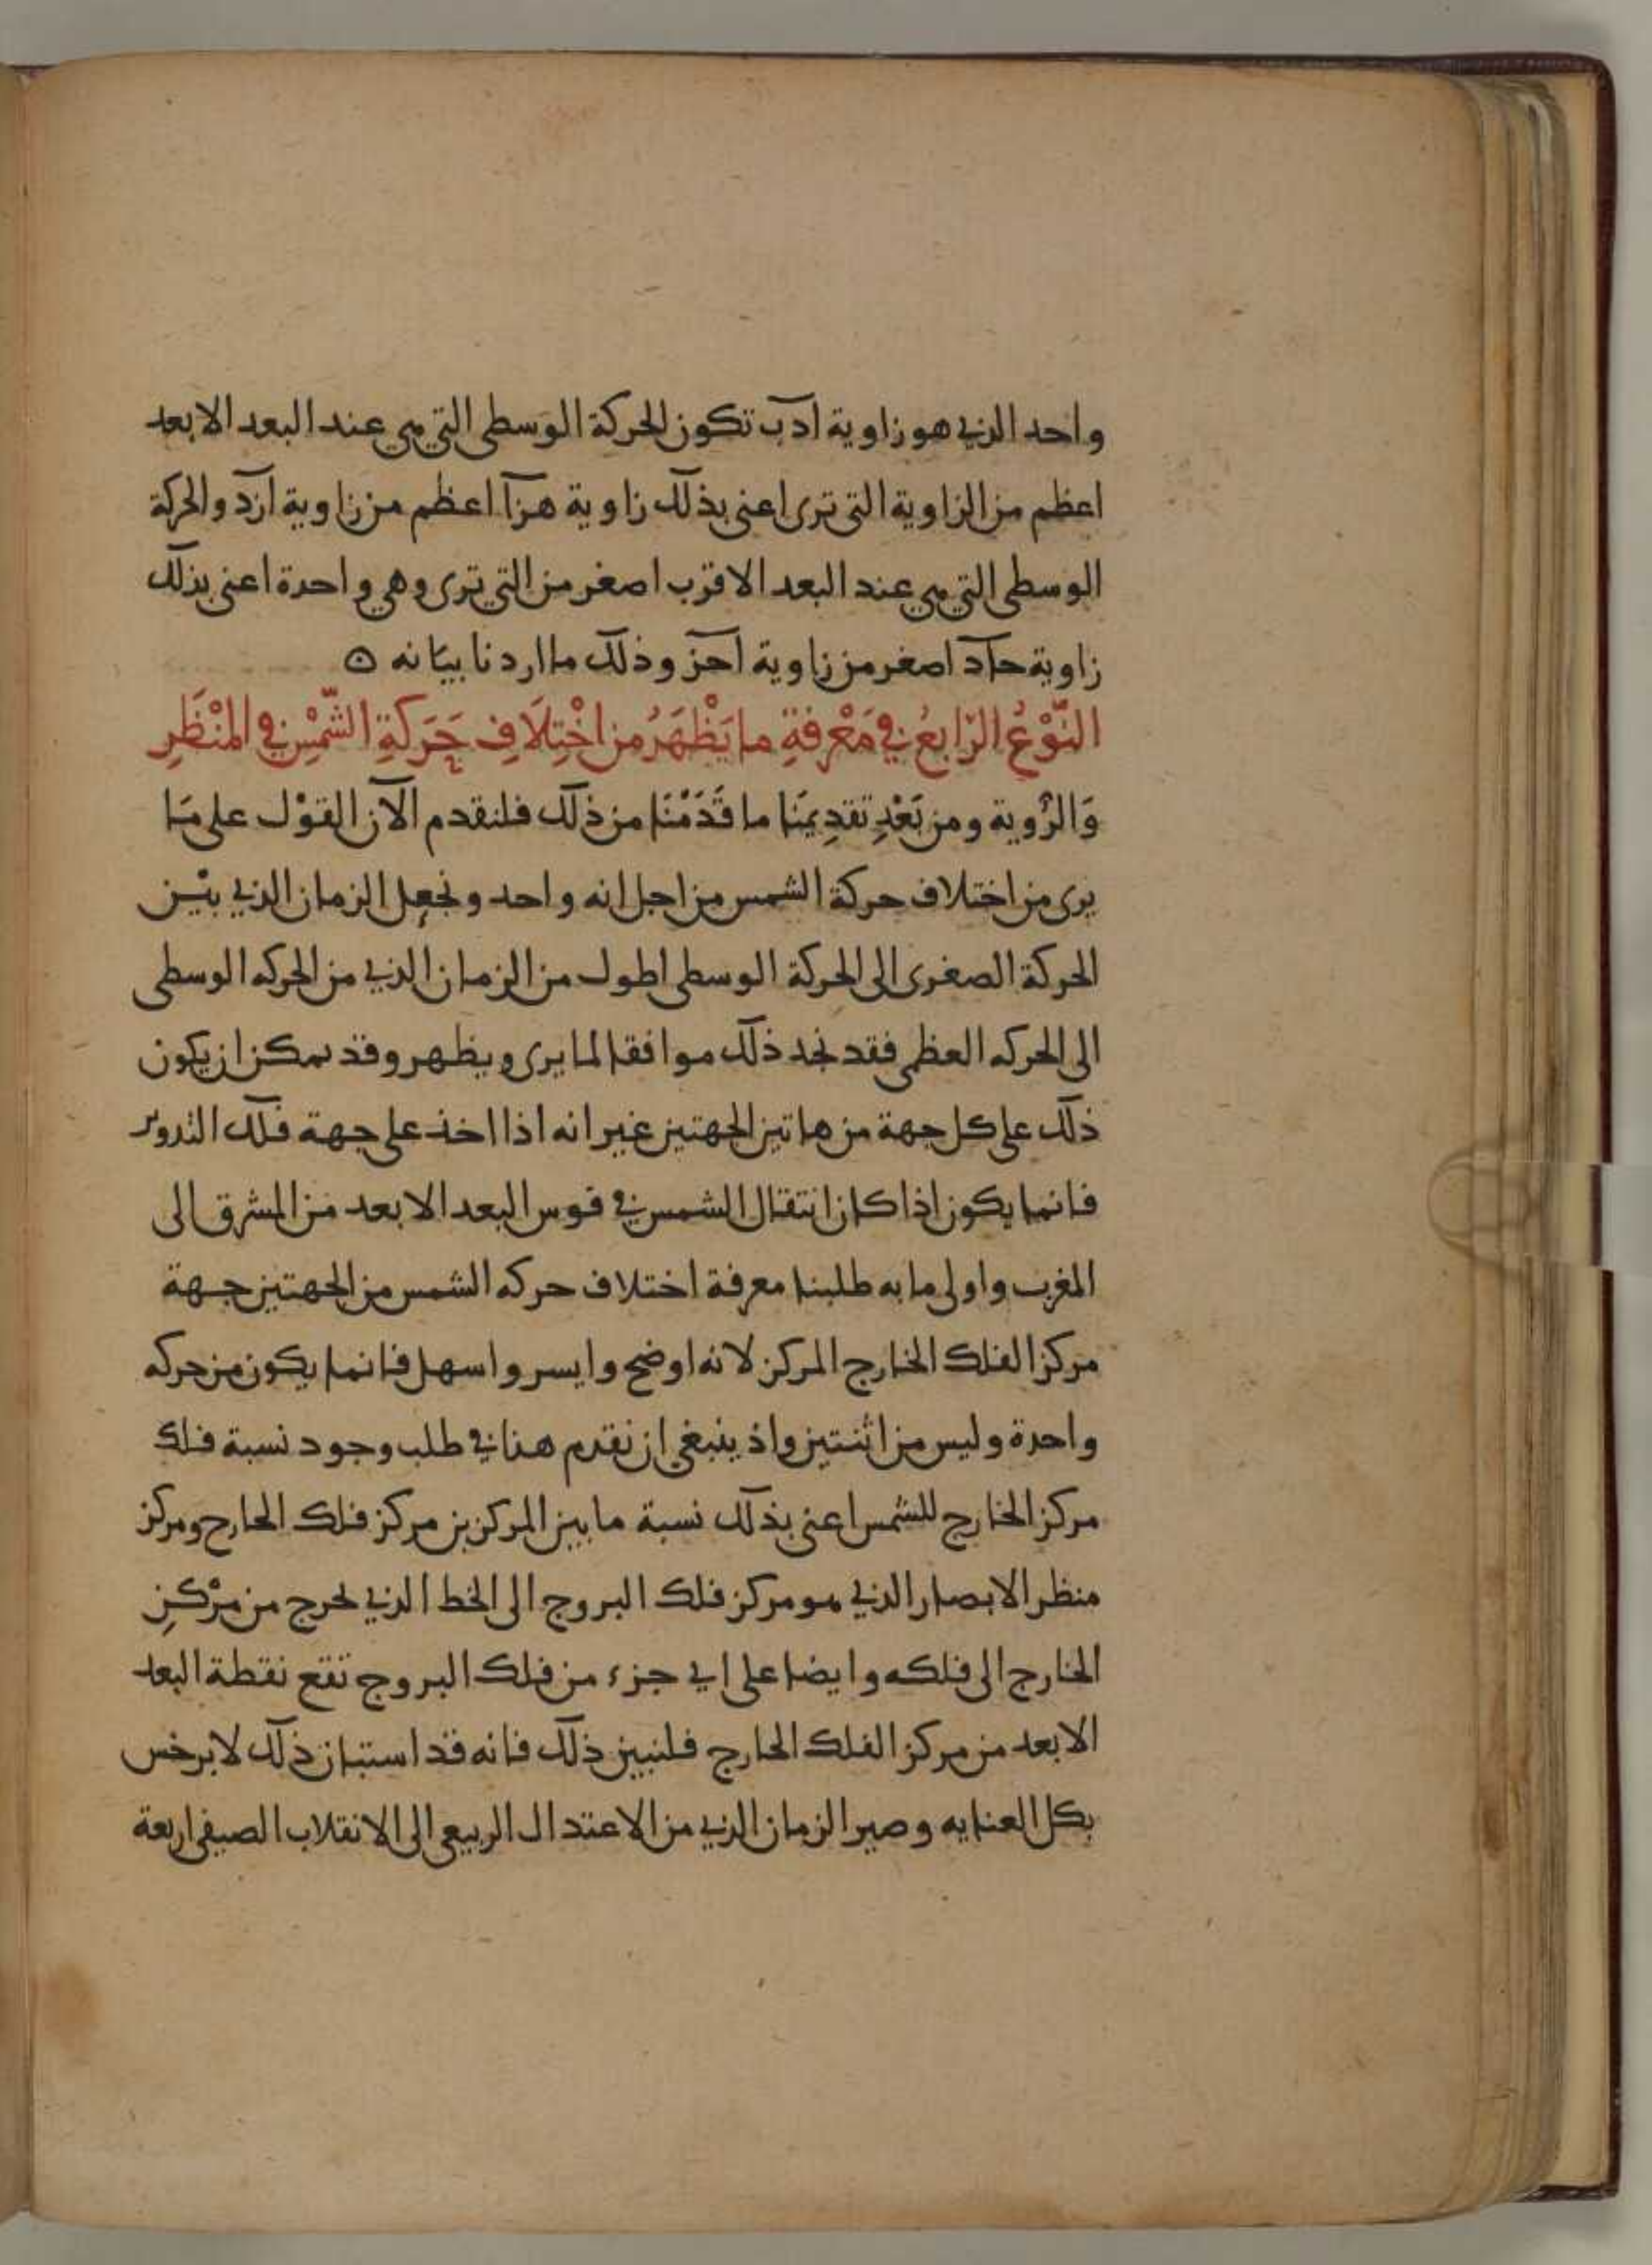 واحد الذي هو زاوية ادب تكون الحركة الوسطى التي هي عند البعد الابعد
اعظم من الزاوية التي ترى اعني بذلك زاوية هزا اعظم من زاوية ازد والحركة
الوسطى التي هي عند البعد الاقرب اصغر من التي ترى وهي واحدة اعني بذلك
زاوية حاد اصغر من زاوية احز وذلك ما اردنا بيانه
النَّوْعُ الرّابعُ في مَعْرفةِ ما يَظْهَرُ من اخْتِلَافِ حَرَكَةِ الشَّمْسِ في المنْظَرِ
وَالرُّوية ومن بَعْدِ تقدِيمنَا ما قَدَمْنَا من ذلك فلنقدم الآن القوْل على مَا
يرى من اختلاف حركة الشمس من اجل انه واحد ونجعل الزمان الذي بيْن
الحركة الصغرى الى الحركة الوسطى اطول من الزمان الذي من الحركه الوسطى
الى الحركه العظمى فقد نجد ذلك موافقا لما يرى ويظهر وقد يمكن ان يكون
ذلك على كل جهة من هاتين الجهتين غير انه اذا اخذ على جهة فلك التدوير
فانما يكون اذا كان انتقال الشمس في قوس البعد الابعد من المشرق الى
المغرب واولى ما به طلبنا معرفة اختلاف حركه الشمس من الجهتين جهة
مركز الفلك الخارج المركز لانه اوضح وايسر واسهل فانما يكون من حركه
واحدة وليس من اثنتين واذ ينبغي ان نقدم هنا في طلب وجود نسبة فلك
مركز الخارج للشمس اعني بذلك نسبة ما بين المركزين مركز فلك الخارج ومركز
منظر الابصار الذي هو مركز فلك البروج الى الخط الذي يخرج من مرْكزِ
الخارج الى فلكه وايضا على اي جزء من فلك البروج تقع نقطة البعد
الابعد من مركز الفلك الخارج فلنبين ذلك فانه قد استبان ذلك لابرخس
بكل العنايه وصير الزمان الذي من الاعتدال الربيعي الى الانقلاب الصيفي اربعة